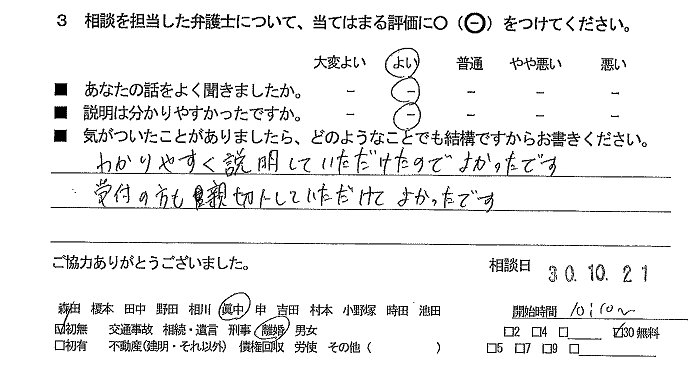 3 相談を担当した弁護士について、当てはまる評価に○（⊖）をつけてください。
大変よい よい 普通 やや悪い 悪い
■ あなたの話をよく聞きましたか。 － － － － －
■ 説明は分かりやすかったですか。 － － － － －
■ 気がついたことがありましたら、どのようなことでも結構ですからお書きください。
わかりやすく説明していただけたのでよかったです
受付の方も親切にしていただけてよかったです
ご協力ありがとうございました。
相談日 30.10.21
森田 榎本 田中 野田 相川 眞中 申 吉田 村本 小野塚 時田 池田 開始時間 10:10～
☑初無 交通事故 相続・遺言 刑事 離婚 男女 □2 □4 □ ☑30無料
□初有 不動産（建明・それ以外） 債権回収 労使 その他（ ） □5 □7 □9 □